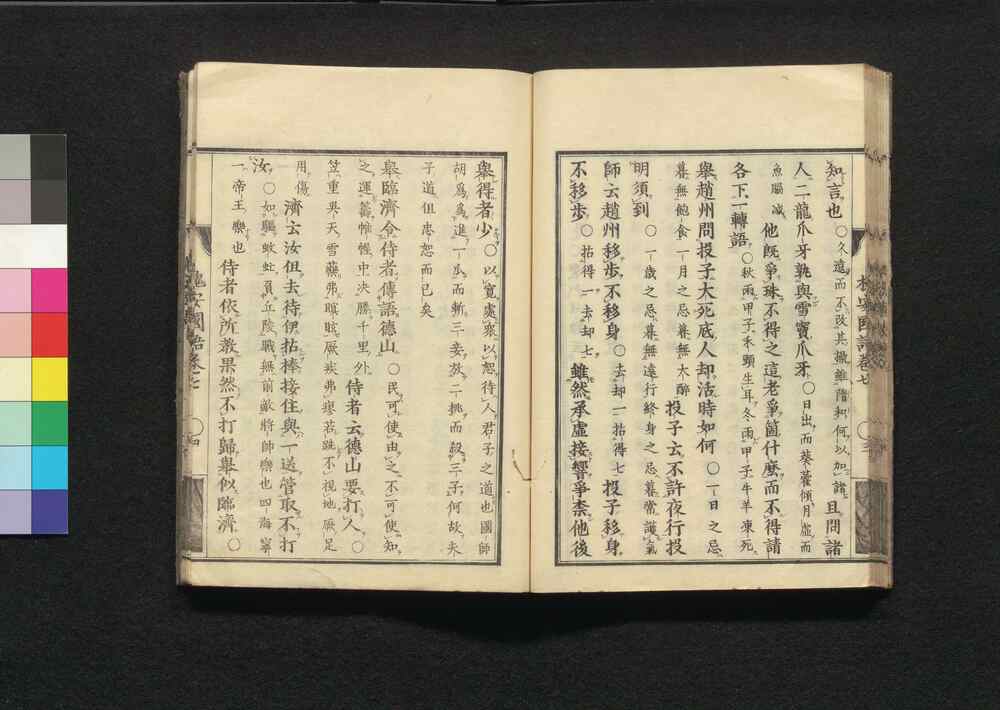 知言也○久遠而不改其撒雖隋和何以加諸且問諸
人二龍爪牙孰與雪竇爪牙○日出而葵藿傾月虛而
魚腦減他既爭珠不得之這老爭箇什麼而不得請
各下一轉語○秋雨甲子禾頭生耳冬雨甲子牛羊凍死
舉趙州問投子大死底人却活時如何○一日之忌
暮無飽食一月之忌暮無大醉投子云不許夜行投
明須到○一歲之忌暮無遠行終身之忌暮常護氣
師云趙州移步不移身○去却一拈得七投子移身
不移步○拈得一去却七雖然承虛接響爭柰他後
槐安國語卷七
舉得者少○以寬處衆以恕待人君子之道也國師
胡爲爲進一瓜而斬三妾放二桃而殺三子何故夫
子道但忠恕而已矣
舉臨濟令侍者傳語德山○民可使由之不可使知
之運籌帷幄中決勝千里外侍者云德山要打人○
笠重吳天雪藥弗瞑眩厥疾弗瘳若跣不視地厥足
用傷濟云汝但去待伊拈棒接住與一送管取不打
汝○如驅蚊虻負丘陵戰無前敵將帥樂也四海寧
一帝王樂也侍者依所教果然不打歸舉似臨濟○
槐安國語卷七 ○四